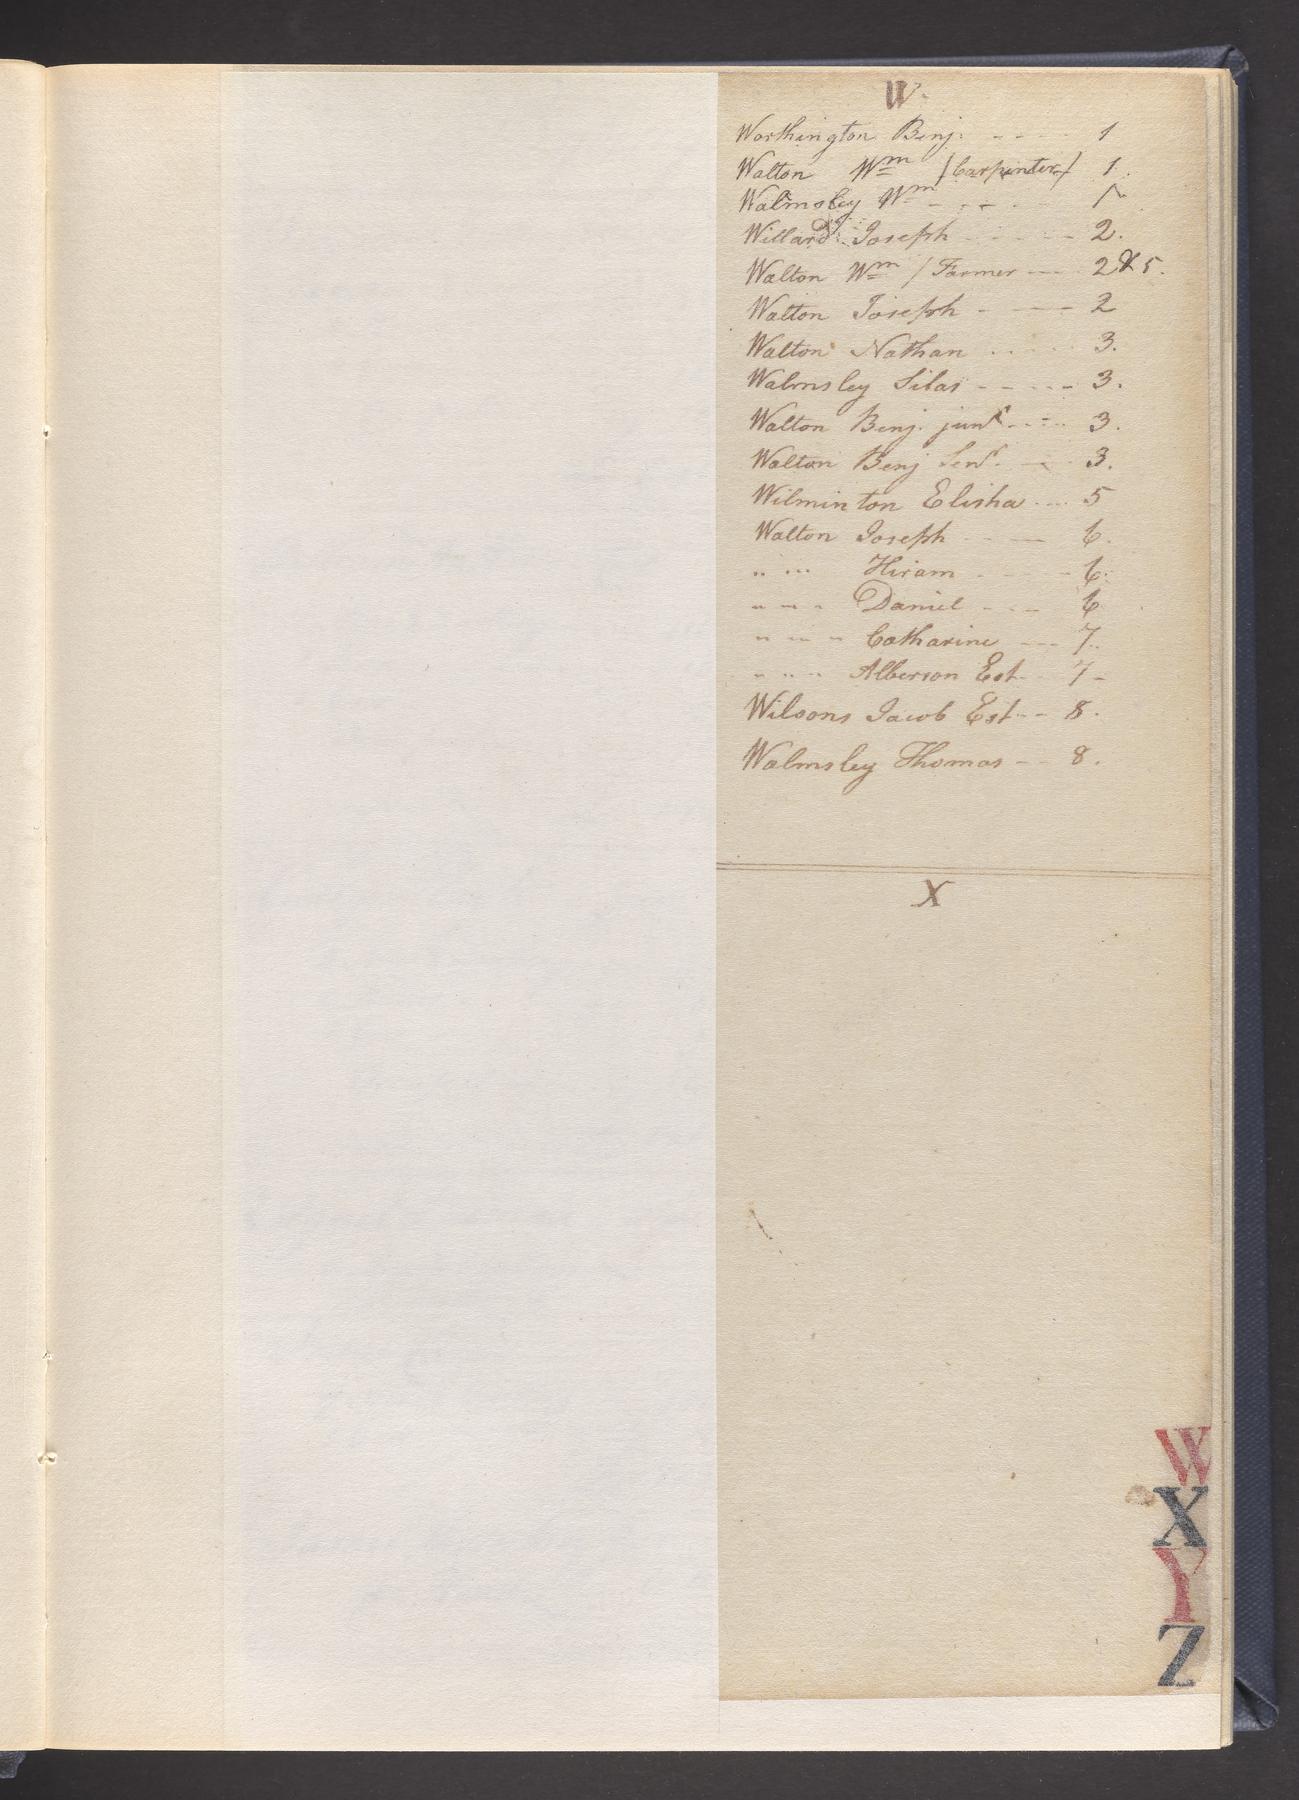 W.
Worthington Benj. - - - - 1
Walton Wm / Carpenter / 1.
Walmsley Wm - - - - 1
Willard Joseph - - - - 2.
Walton Wm / Farmer - - - 2 & 5.
Walton Joseph - - - - 2
Walton Nathan - - - - 3.
Walmsley Silas - - - - - 3.
Walton Benj. junr. - - - - 3.
Walton Benj Senr. - - - 3.
Wilminton Elisha - - - 5
Walton Joseph - - - - 6.
" " Hiram - - - - 6.
" " " Daniel - - - - 6
" " " Catharine - - - 7.
" " " Alberson Est - - 7 -
Wilsons Jacob Est - - 8.
Walmsley Thomas - - - 8.
X
W
X
Y
Z